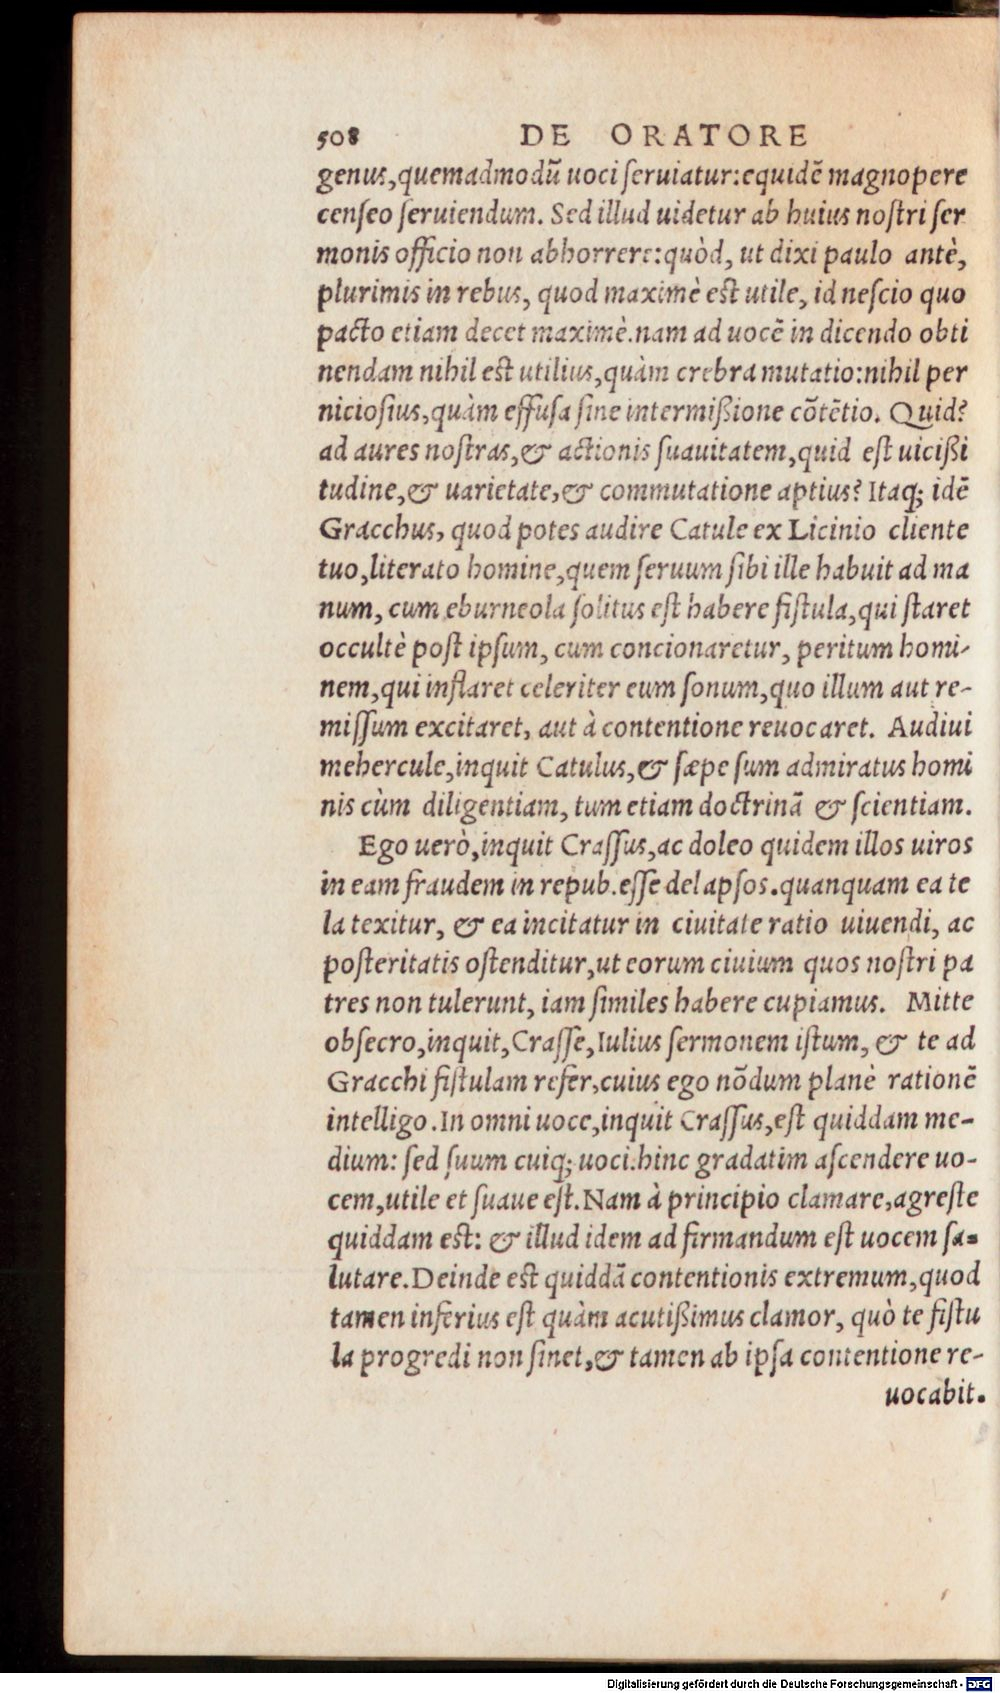 508 DE ORATORE
genus,quemadmodũ uoci ſeruiatur:equidẽ magnopere
cenſeo ſeruiendum. Sed illud uidetur ab huius noſtri ſer
monis officio non abhorrere:quòd, ut dixi paulo antè,
plurimis in rebus, quod maximè eſt utile, id neſcio quo
pacto etiam decet maximè.nam ad uocẽ in dicendo obti
nendam nihil eſt utilius,quàm crebra mutatio:nihil per
nicioſius,quàm effuſa ſine intermißione cõtẽtio. Quid?
ad aures noſtras,& actionis ſuauitatem,quid eſt uicißi
tudine,& uarietate,& commutatione aptius? Itaq; idẽ
Gracchus, quod potes audire Catule ex Licinio cliente
tuo,literato homine,quem ſeruum ſibi ille habuit ad ma
num, cum eburneola ſolitus eſt habere fiſtula,qui ſtaret
occultè poſt ipſum, cum concionaretur, peritum homi-
nem,qui inflaret celeriter eum ſonum,quo illum aut re-
miſſum excitaret, aut à contentione reuocaret. Audiui
mehercule,inquit Catulus,& ſæpe ſum admiratus homi
nis cùm diligentiam, tum etiam doctrinã & ſcientiam.
Ego uerò,inquit Craſſus,ac doleo quidem illos uiros
in eam fraudem in repub.eſſe delapſos.quanquam ea te
la texitur, & ea incitatur in ciuitate ratio uiuendi, ac
poſteritatis oſtenditur,ut eorum ciuium quos noſtri pa
tres non tulerunt, iam ſimiles habere cupiamus. Mitte
obſecro,inquit,Craſſe,Iulius ſermonem iſtum, & te ad
Gracchi fiſtulam refer,cuius ego nõdum planè rationẽ
intelligo.In omni uoce,inquit Craſſus,eſt quiddam me-
dium: ſed ſuum cuiq; uoci.hinc gradatim aſcendere uo-
cem,utile et ſuaue eſt.Nam à principio clamare,agreſte
quiddam eſt: & illud idem ad firmandum eſt uocem ſa-
lutare.Deinde eſt quiddã contentionis extremum,quod
tamen inferius eſt quàm acutißimus clamor, quò te fiſtu
la progredi non ſinet,& tamen ab ipſa contentione re-
uocabit.
Digitalisierung gefördert durch die Deutsche Forschungsgemeinschaft - DFG